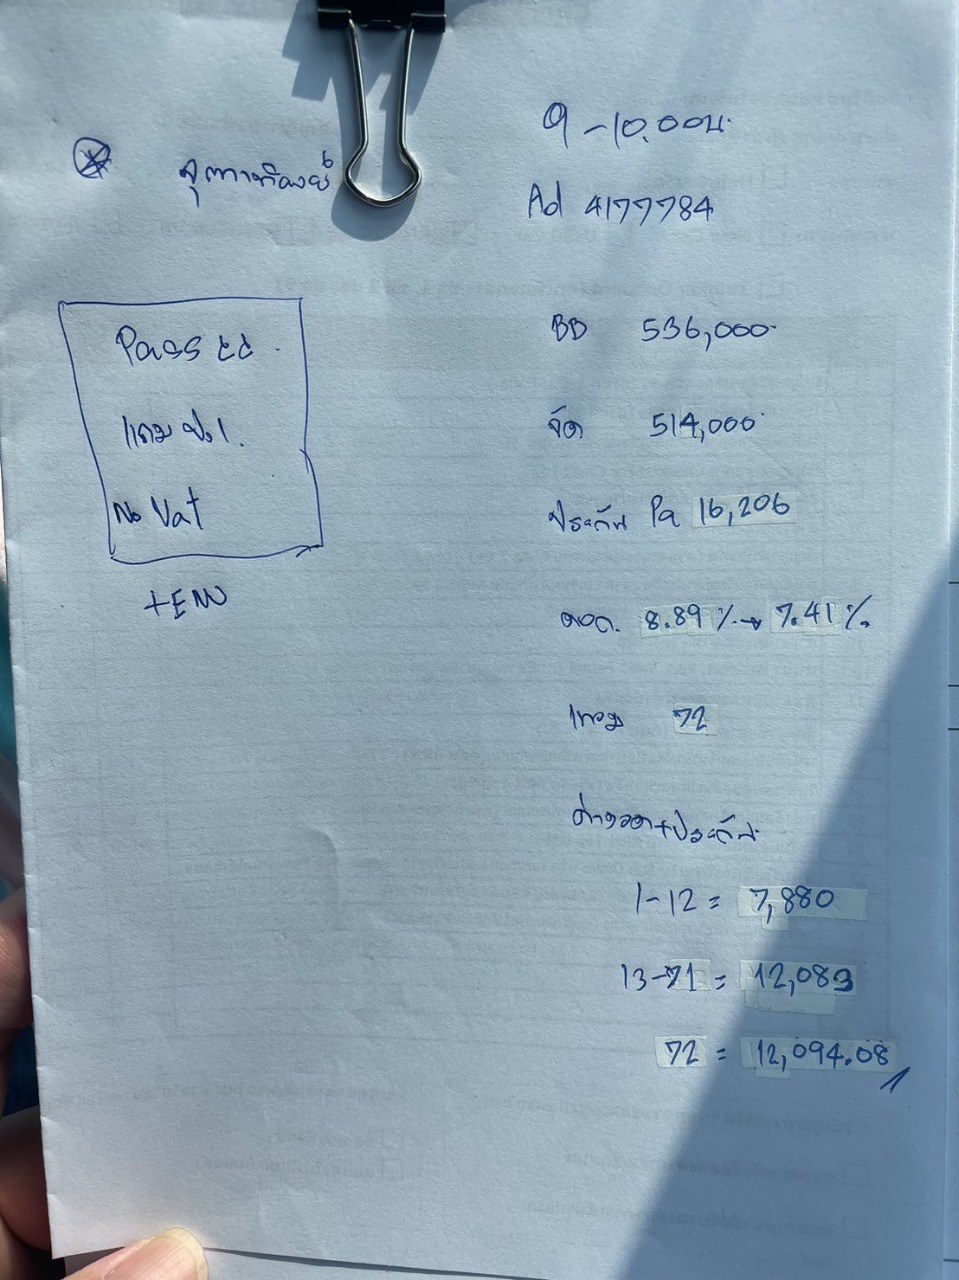 9-10.00น.
สุดาทิพย์
Ad 4177784
BD 536,000
จัด 514,000
ประกัน Pa 16,206
ดอก. 8.89% → 7.41%
เทอม 72
ค่างวด+ประกัน
1-12 = 7,880
13-71 = 12,083
72 = 12,094.08
Pass
แถม ป.1.
No Vat